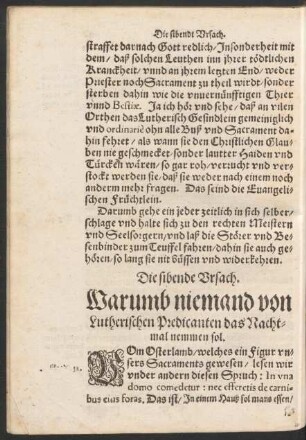 Die sibendt Vrsach.
straffet darnach Gott redlich/Insonderheit mit
dem/ daß solchen Leuthen inn jhrer tödtlichen
Kranckheit/ vnnd an jhrem letzten End/ weder
Priester noch Sacrament zu theil wirdt/ sonder
sterben dahin wie die vnuernünfftigen Thier
vnnd Bestiæ. Ja ich hör vnd sehe/ daß an vilen
Orthen das Lutherisch Gesindlein gemeiniglich
vnd ordinariè ohn alle Buß vnd Sacrament da-
hin fehret/ als wann sie den Christlichen Glau-
ben nie geschmecket/ sonder lauter Haiden vnd
Türcken wären/ so gar roh/ verrucht vnd ver-
stockt werden sie/ daß sie weder nach einem noch
anderm mehr fragen. Das seind die Euangeli-
schen Früchtlein.
Darumb gehe ein jeder zeitlich in sich selber/
schlage vnd halte sich zu den rechten Meistern
vnd Seelsorgern/ vnd laß die Störer vnd Be-
senbinder zum Teuffel fahren/ dahin sie auch ge-
hören/ so lang sie nit büssen vnd widerkehren.
Die sibende Vrsach.
Warumb niemand von
Lutherischen Predicanten das Nacht-
mal nemmen sol.
VOm Osterlamb/ welches ein Figur vn-
sers Sacraments gewesen/ lesen wir
vnder andern disen Spruch: In vna
domo comedetur: nec efferetis de carni-
bus eius foras, Das ist/ In einem Hauß sol mans essen/